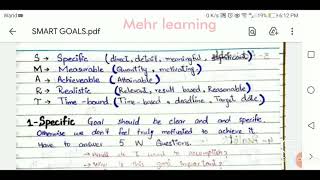 Mehr learning
Wand
0 K/s
19%
6:12 PM
SMART GOALS.pdf
S → Specific (direct, detail, meaningful, significant)
M → Measurable (Quantity, motivating)
A → Achieveable (Attainable)
R → Realistic (Relevant, result based, Reasonable)
T → Time-bound (Time-based & deadline, Target date)
1-Specific Goal should be clear and and specific.
Otherwise we don't feel truly motivated to achieve it.
Have to answer 5 W Questions.
→ What do I want to accomplish?
→ Why is this goal important?